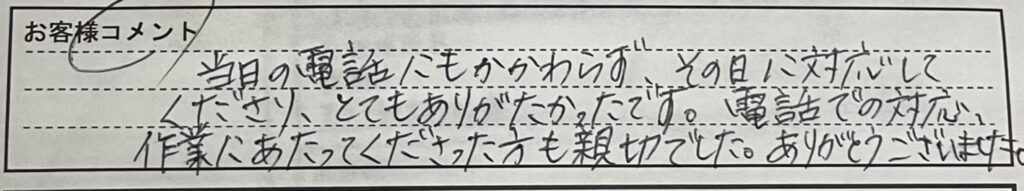 お客様コメント
当日の電話にもかかわらず、その日に対応して
くださり、とてもありがたかったです。電話での対応、
作業にあたってくださった方も親切でした。ありがとうございました。